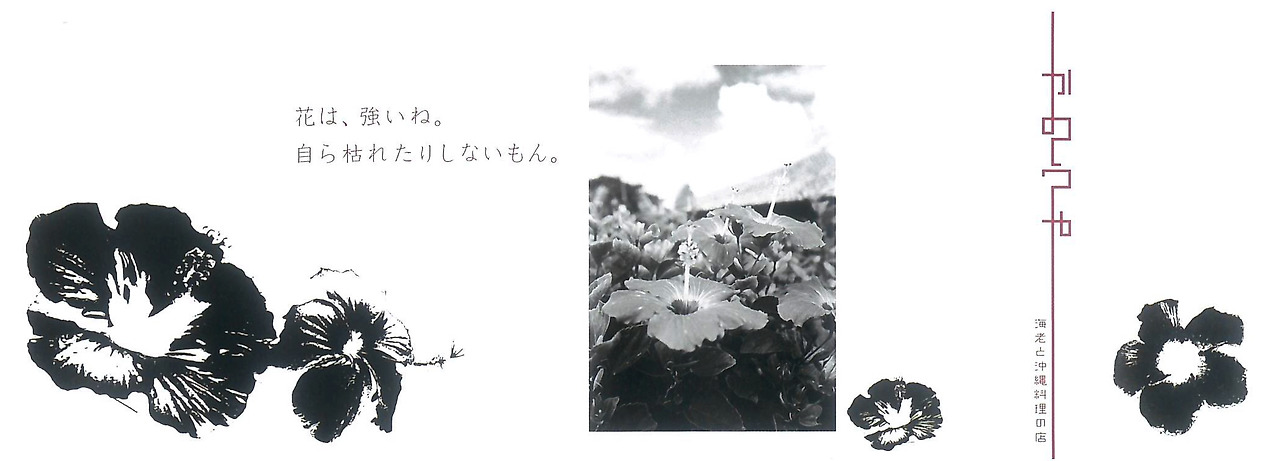 花は、強いね。
自ら枯れたりしないもん。
海老と沖縄料理の店